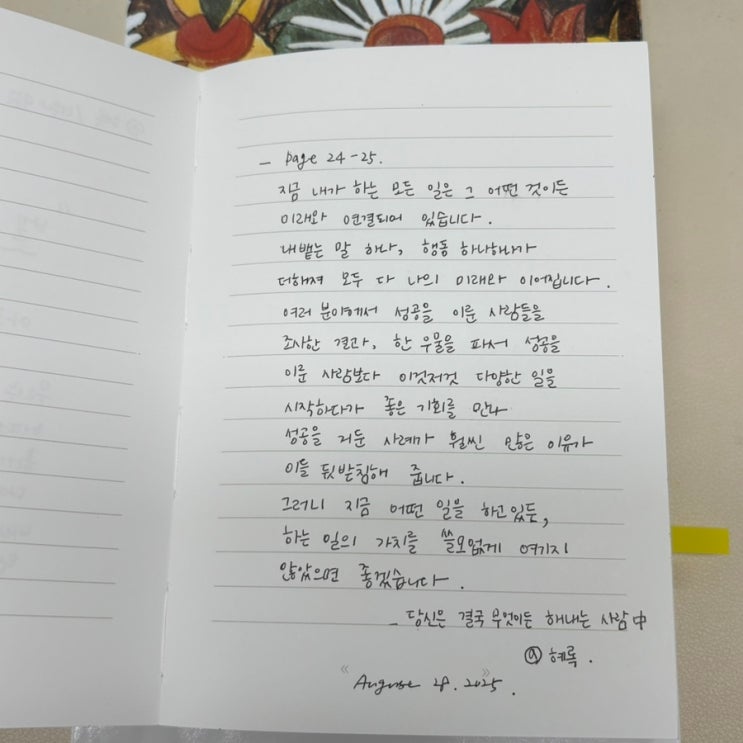 - page 24-25.
지금 내가 하는 모든 일은 그 어떤 것이든
미래와 연결되어 있습니다.
내뱉는 말 하나, 행동 하나하나가
더해져 모두 다 나의 미래와 이어집니다.
여러 분야에서 성공을 이룬 사람들을
조사한 결과, 한 우물을 파서 성공을
이룬 사람보다 이것저것 다양한 일을
시작하다가 좋은 기회를 만나
성공을 거둔 사례가 훨씬 많은 이유가
이를 뒷받침해 줍니다.
그러니 지금 어떤 일을 하고있든,
하는 일의 가치를 쓸모없게 여기지
않았으면 좋겠습니다.
- 당신은 결국 무엇이든 해내는 사람 中
ⓐ 혜록.
《 August 28. 2025. 》